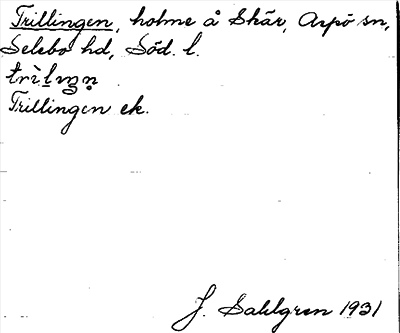 Trillingen, holme å Skär, Aspö sn,
Selebo hd, Söd. l.
Trillingen ek.
J. Sahlgren 1931